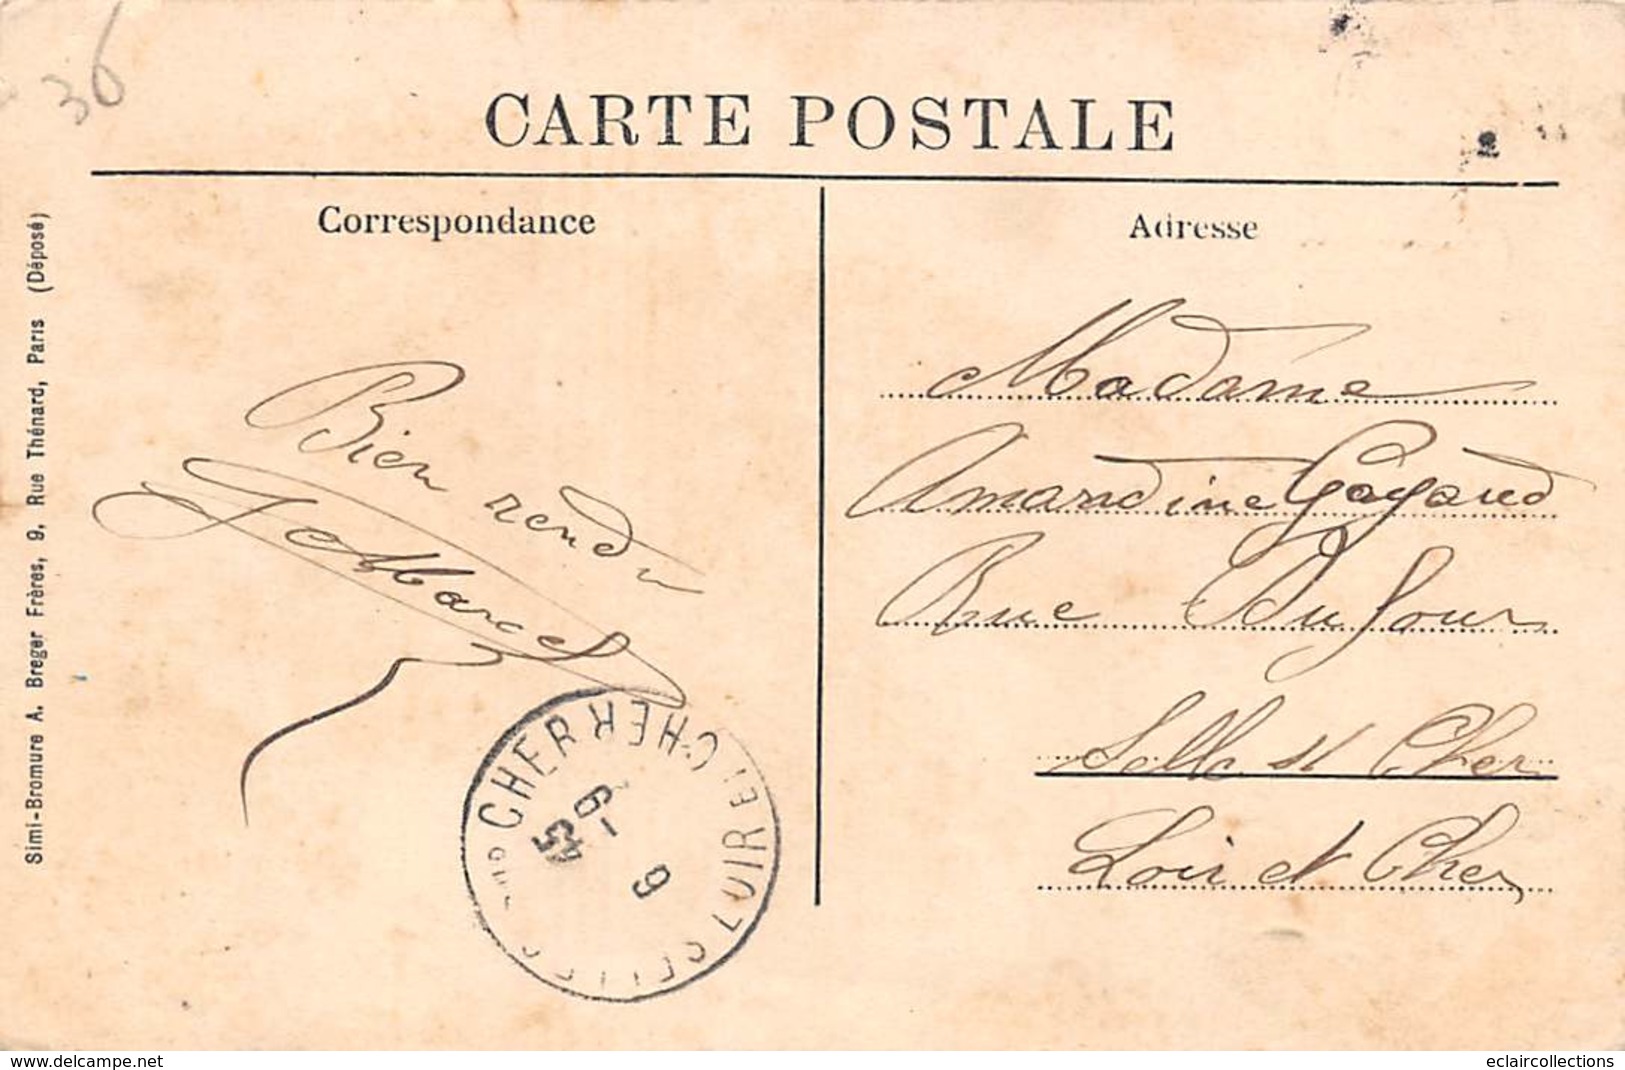 36
CARTE POSTALE
Correspondance
Adresse
Simi-Bromure A. Breger Frères, 9, Rue Thénard, Paris (Déposé)
Bien rendu
Marcel
Madame
Amandine Gayaud
Rue Dufour
Selle st Cher
Loir et Cher
SELLES SUR CHER
LOIR ET CHER
6-9
45
9
www.delcampe.net
eclaircollections